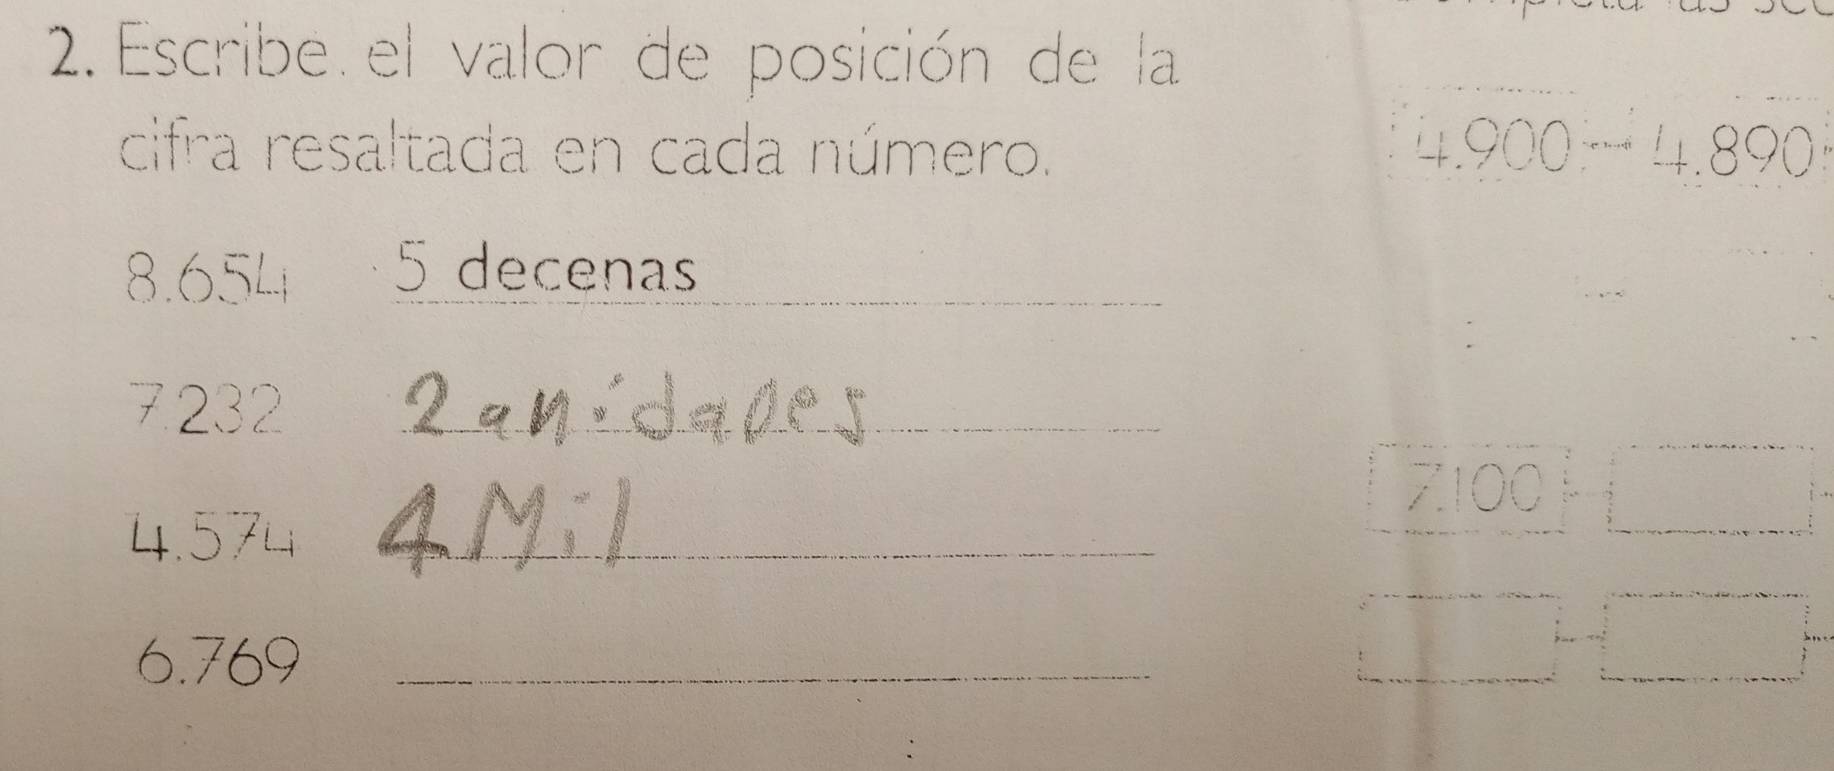 2. Escribe el valor de posición de la
cifra resaltada en cada número.
8.654 5 decenas
7.232 2 anidades
4.574 4 Mil
6.769
4.900 4.890
7.100